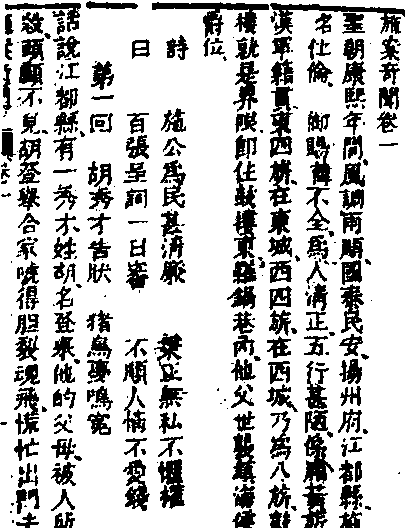 施案奇聞卷一
聖朝康熙年間風調雨順國泰民安揚州府江都縣
名仕倫 御賜諱不全為人清正五行甚陋係鑲黃旗
漢軍籍貫東四旂在東城西四旂在西城乃為八旂
樓就是界限即住鼓樓東羅鍋巷內他父世襲鎮海侯
爵位
詩 施公為民甚清廉 梁正無私不懼權
曰 百張呈詞一日審 不順人情不愛錢
第一回 胡秀才告狀 猪鳥夢鳴冤
話說江都縣有一秀才姓胡名登舉他的父母被人所
殺頭顱不見胡登舉合家唬得胆裂魂飛慌忙出門去